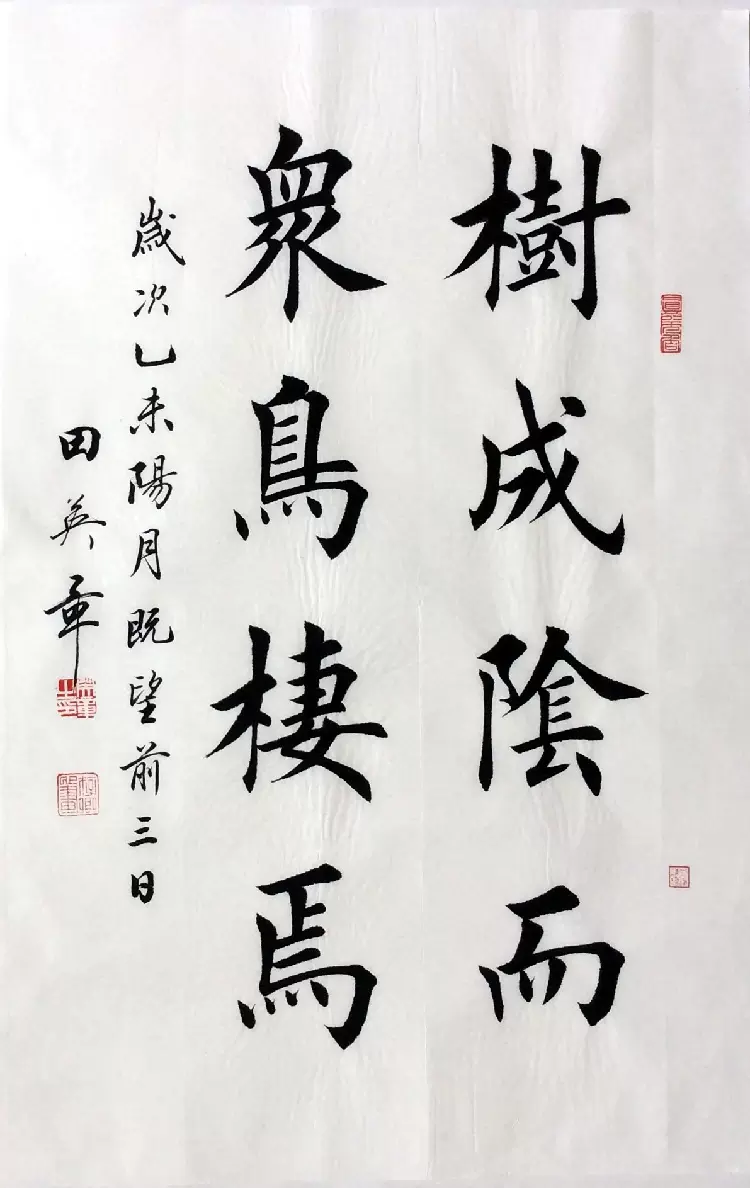 樹成陰而
眾鳥棲焉
歲次乙未陽月既望前三日
田英章